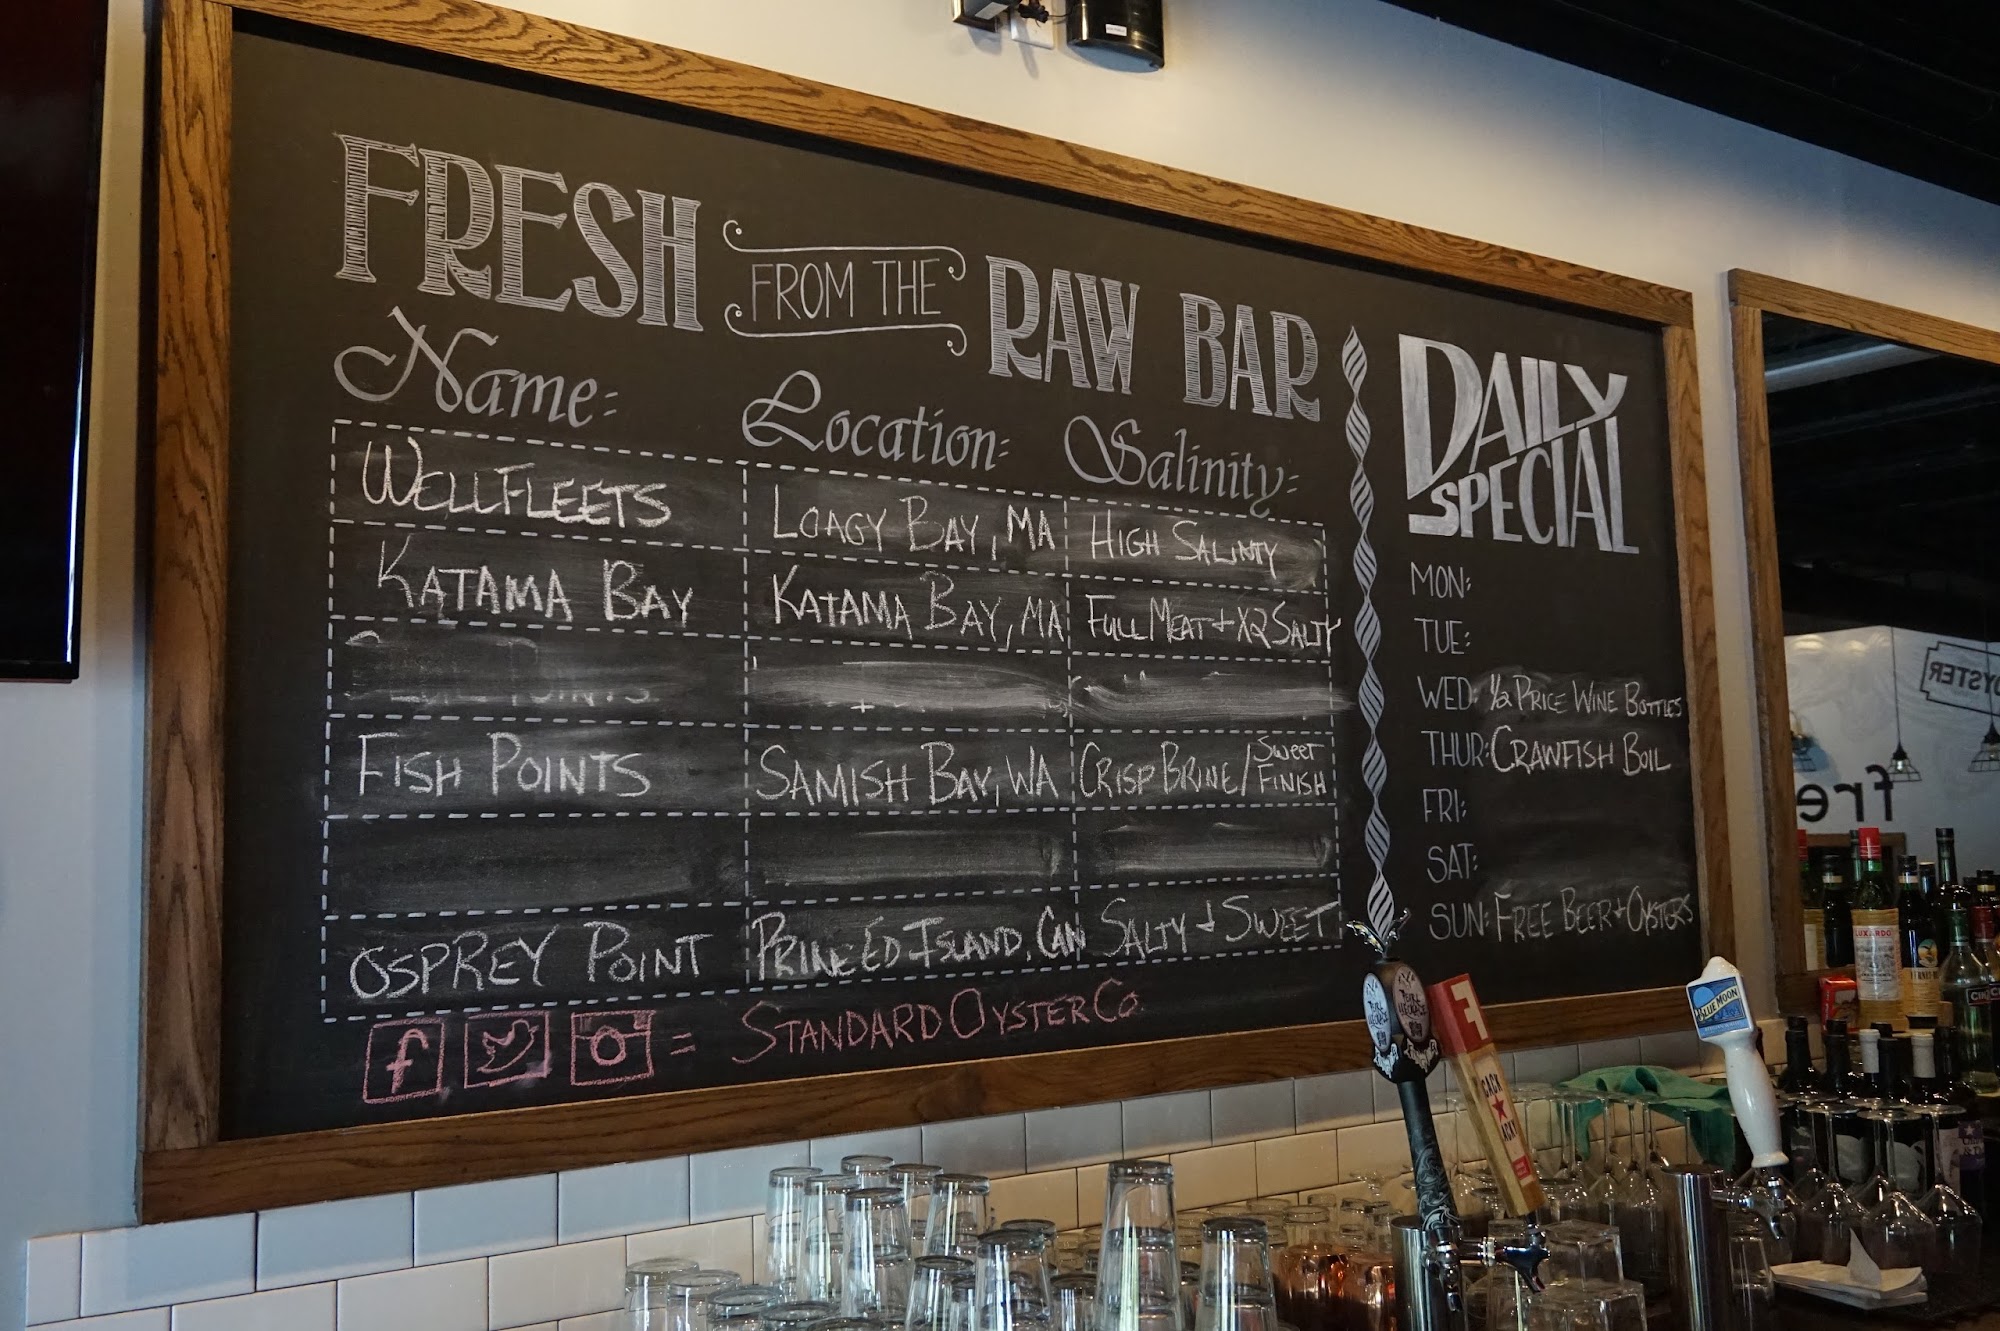 FRESH FROM THE RAW BAR
Name: Location: Salinity:
WELLFLEETS LOAGY BAY, MA HIGH SALINTY
KATAMA BAY KATAMA BAY, MA FULL MEAT + X2 SALTY
FISH POINTS SAMISH BAY, WA CRISP BRINE/SWEET FINISH
OSPREY POINT PRINCE ED. ISLAND, CAN SALTY + SWEET
f = STANDARD OYSTER CO.
DAILY
SPECIAL
MON:
TUE:
WED: 1/2 PRICE WINE BOTTLES
THUR: CRAWFISH BOIL
FRI:
SAT:
SUN: FREE BEER + OYSTERS
OYSTER
fre
LUXARDO
BLUE MOON